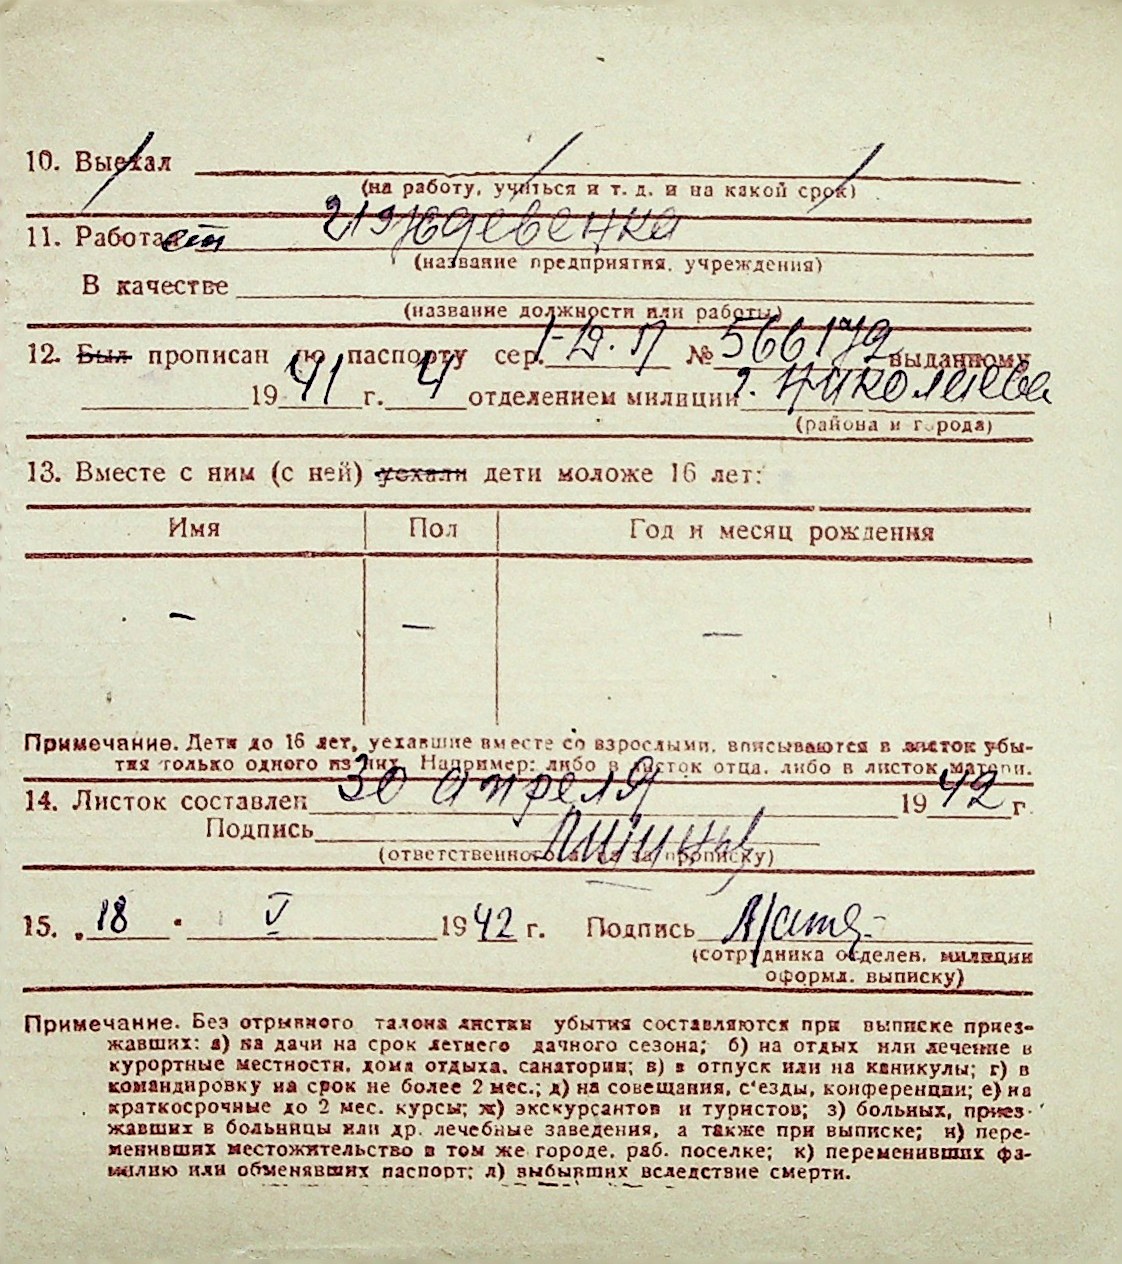 10. Выехал
(на работу, учиться и т. д. и на какой срок)
11. Работает иждевенка
(название предприятия, учреждения)
В качестве
(название должности или работы)
12. Был прописан по паспорту сер. № 566172 выданному
1941 г. 4 отделением милиции г. Николаева
(района и города)
13. Вместе с ним (с ней) уехали дети моложе 16 лет:
Имя Пол Год и месяц рождения
— — —
Примечание. Дети до 16 лет, уехавшие вместе со взрослыми, вписываются в листок убы-
тия только одного из них. Например: либо в листок отца, либо в листок матери.
14. Листок составлен 30 апреля 1942 г.
Подпись
(ответственного за прописку)
15. „18 " V 1942 г. Подпись
(сотрудника отделен. милиции
оформл. выписку)
Примечание. Без отрывного талона листки убытия составляются при выписке приез-
жавших: а) на дачи на срок летнего дачного сезона; б) на отдых или лечение в
курортные местности, дома отдыха, санатории; в) в отпуск или на каникулы; г) в
командировку на срок не более 2 мес.; д) на совещания, с'езды, конференции; е) на
краткосрочные до 2 мес. курсы; ж) экскурсантов и туристов; з) больных, приез-
жавших в больницы или др. лечебные заведения, а также при выписке; и) пере-
менивших местожительство в том же городе, раб. поселке; к) переменивших фа-
милию или обменявших паспорт; л) выбывших вследствие смерти.